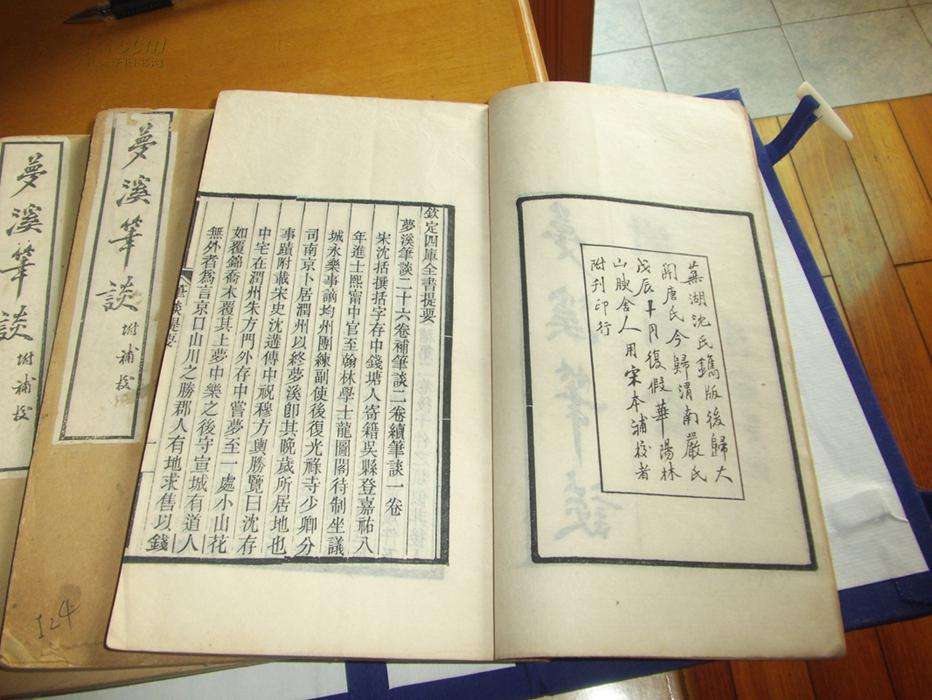 蕪湖沈氏鐫版後歸大
關唐氏今歸渭南嚴氏
戊辰十月復假華陽林
山腴舍人用宋本補校者
附刊印行
欽定四庫全書提要
夢溪筆談二十六卷補筆談二卷續筆談一卷
宋沈括撰括字存中錢塘人寄籍吳縣登嘉祐八
年進士熙寧中官至翰林學士龍圖閣待制坐議
城永樂事謫均州團練副使後復光祿寺少卿分
司南京卜居潤州以終夢溪卽其晚歲所居地也
事蹟附載宋史沈遘傳中祝穆方輿勝覽曰沈存
中宅在潤州朱方門外存中嘗夢至一處小山花
如覆錦喬木覆其上夢中樂之後守宣城有道人
無外者爲言京口山川之勝郡人有地求售以錢
夢溪筆談
附補校
夢溪筆談
附補校
124